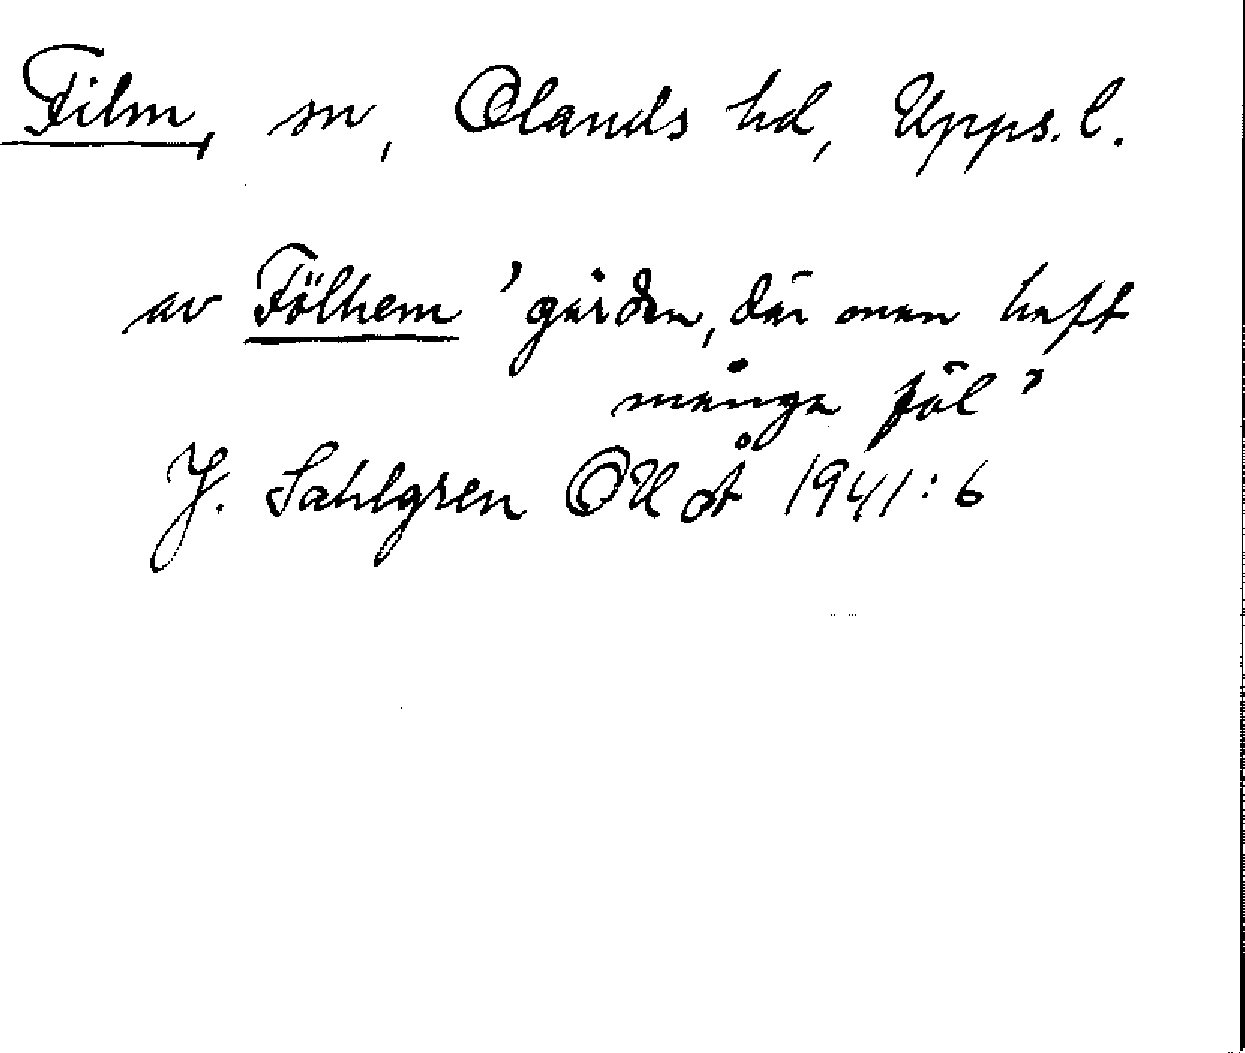 Film, sn, Olands hd, Upps. l.
av Fölhem 'gården, där man haft
många föl'
J. Sahlgren OUÅ 1941:6